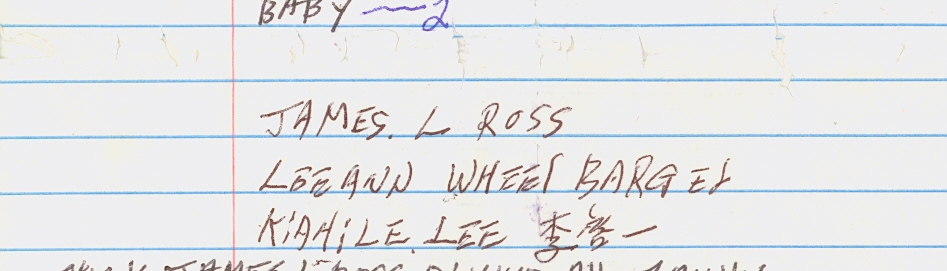 BABY — 2
JAMES. L ROSS
LEEANN WHEEL BARGES
KiAHiLE. LEE 李啓一
JAMES